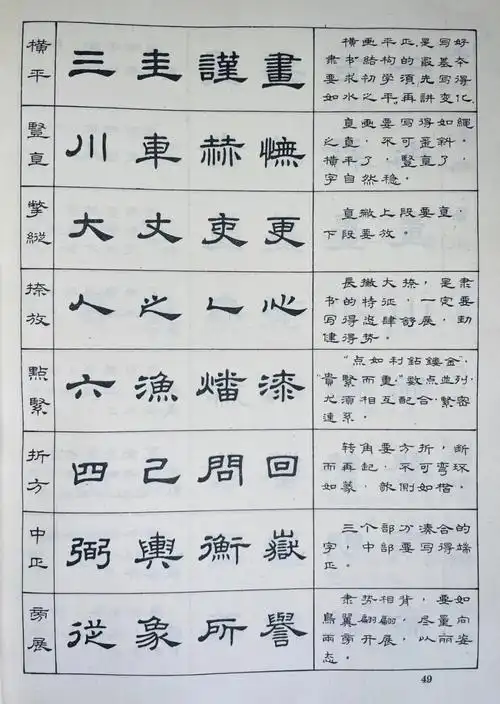 横平
三 圭 謹 畫
横画平正,是写好
隶书结构的最基本
要求,初学须先写得
如水之平,再讲变化。
豎直
川 車 赫 憮
直画要写得如繩
之直,不可歪斜。
横平了,豎直了,
字自然稳。
撇縱
大 丈 吏 更
直撇上段要直,
下段要放。
捺放
人 之 乀 心
長撇大捺,是隶
书的特征,一定要
写得逌肆舒展,劲
健得势。
點緊
六 漁 燔 漆
“点如利鉆鏤金”,
“貴緊而重”,数点並列,
尤須相互配合,緊密
連系。
折方
四 己 問 回
转角要方折,断
而再起,不可弯环
如篆,
中正
弼 輿 衡 嶽
三个部分湊合的
字,中部要写得端
正。
旁展
從 象 所 譽
隶势相背,要如
鳥翼翩翩,尽量向
两旁开展,以丽姿
态。
49